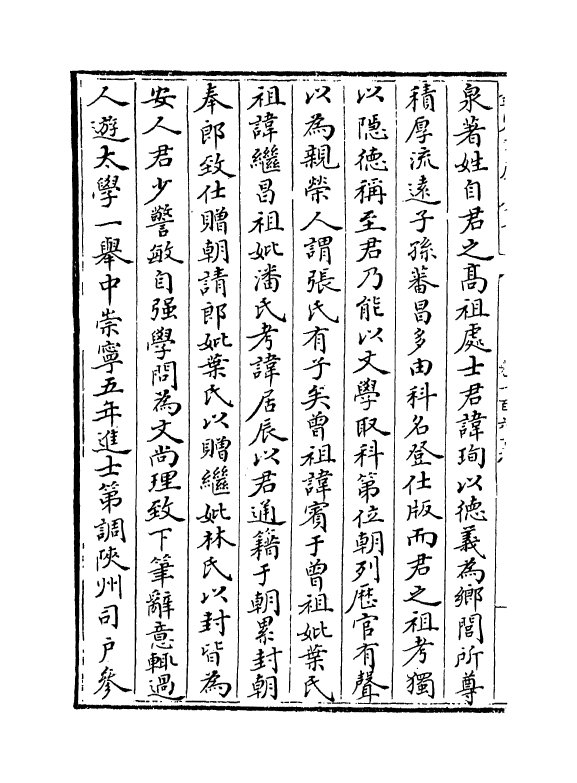 泉著姓自君之髙祖處士君諱珣以徳義為鄉閭所尊
積厚流逺子孫蕃昌多由科名登仕版而君之祖考獨
以隠徳稱至君乃能以文學取科第位朝列歴官有聲
以為親榮人謂張氏有子矣曾祖諱賓于曾祖妣葉氏
祖諱繼昌祖妣潘氏考諱居辰以君通籍于朝累封朝
奉郎致仕贈朝請郎妣葉氏以贈繼妣林氏以封皆為
安人君少警敏自强學問為文尚理致下筆辭意輒過
人遊太學一舉中崇寧五年進士第調陜州司户參